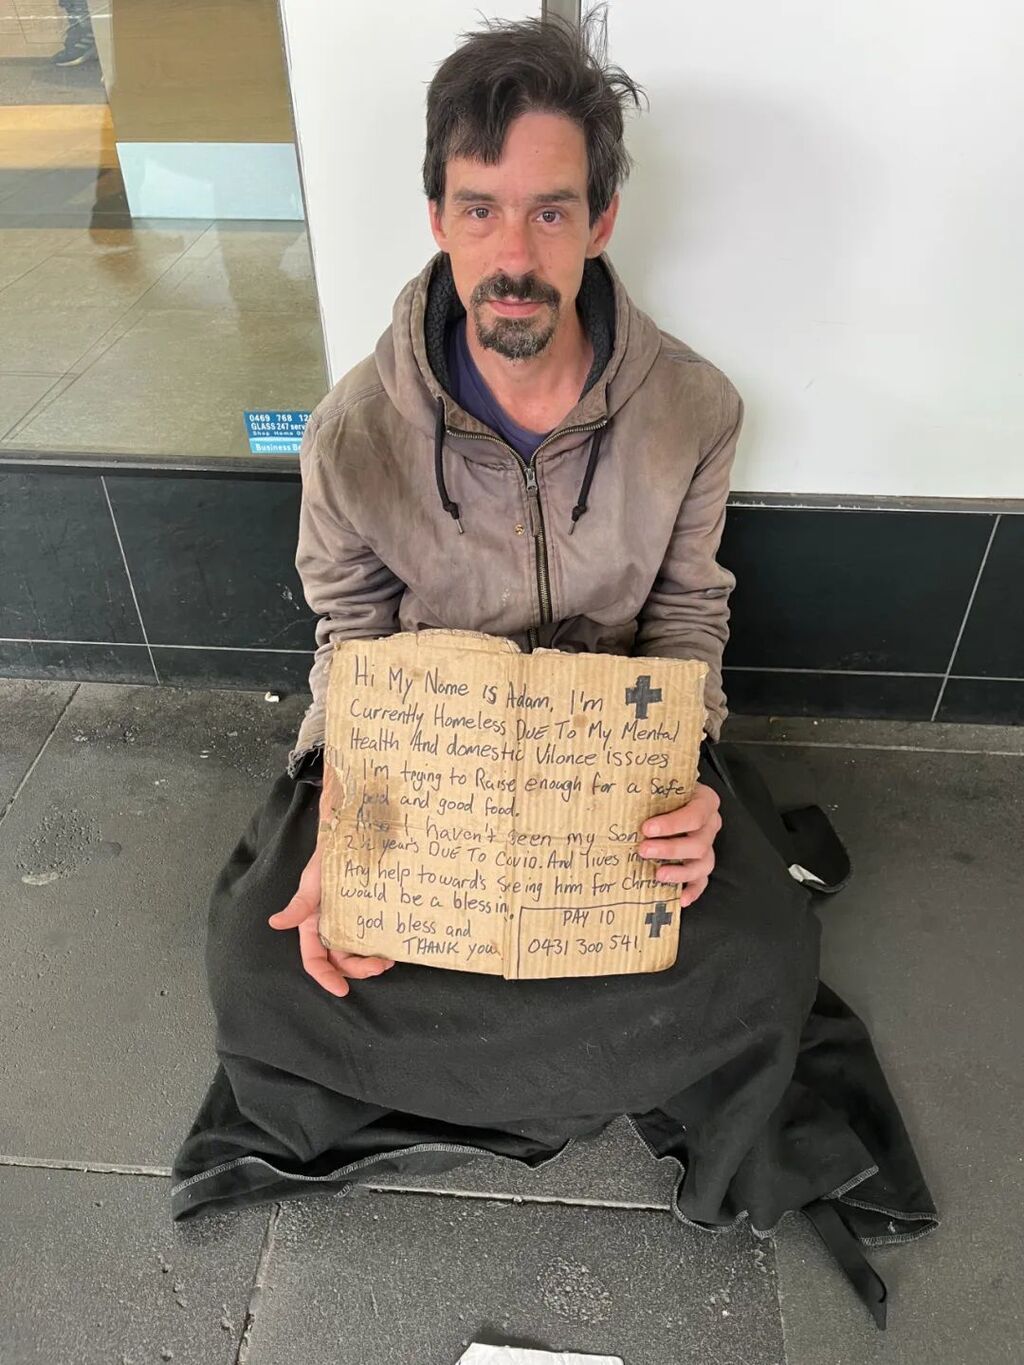 0469 768 12
GLASS 247 serv
Shop Home
Business Be
Hi My Name is Adam, I'm
Currently Homeless DUE To My Mental
Health And domestic Vilonce issues
I'm trying to Raise enough for a Safe
and good food.
Also I haven't seen my Son
2½ year's DUE To Covid. And lives in
Any help toward's Seeing him for Christmas
would be a blessin.
god bless and
THANK you
PAY ID
0431 300 541.